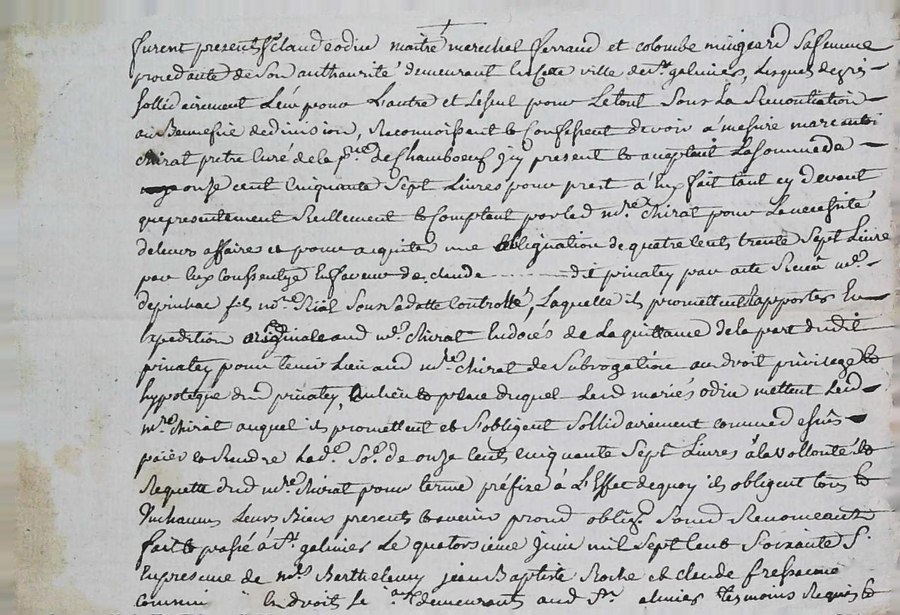 furent presents Sr claude odin maitre marechal ferrand et colombe mingeard sa femme
procedante de son authaurité demeurant en cette ville de St galmier, lesquels de gré
sollidairement l'un pour l'autre et le seul pour le tout sous la renontiation
au benneffice de division, reconnoissent et confessent devoir à mesire marc antoi
chirat pretre curé de la psse de Chamboeuf icy present et acceptant la somme de
onze cent cinquante sept livres pour prest à eux fait tant cy devant
que presentement reellement et comptant par led mre Chirat pour la necessité
de leurs affaires et pour acquiter une obligation de quatre cents trente sept livre
par eux consentye en faveur de claude dit privatey par acte receu me
depinhac fils nore Rial sous sa datte controllé, laquelle ils promettent rapporter en
expedition originale aud mre Chirat endocés de la quittance de la part dudit
privatey pour tenir lieu aud mre Chirat de subrogation au droit privilege et
hypoteque dud privatey, au lieu et place duquel lesd mariés odin mettent led
mre Chirat auquel ils promettent et s'obligent sollidairement comme dessus
paier et rendre lade so. de onze cents cinquante sept livres à la vollonté et
requette dud mre Chirat pour terme préfixe à l'effet de quoy ils obligent tous et
un chacuns leurs biens presents et avenir promd oblig. soumd renonceant
fait et passé à St galmier le quatorsieme juin mil sept cent soixante s.
en presence de mes Barthelemy jean Baptiste Roche et claude
commis en droits demeurants aud St galmier temoins requis et